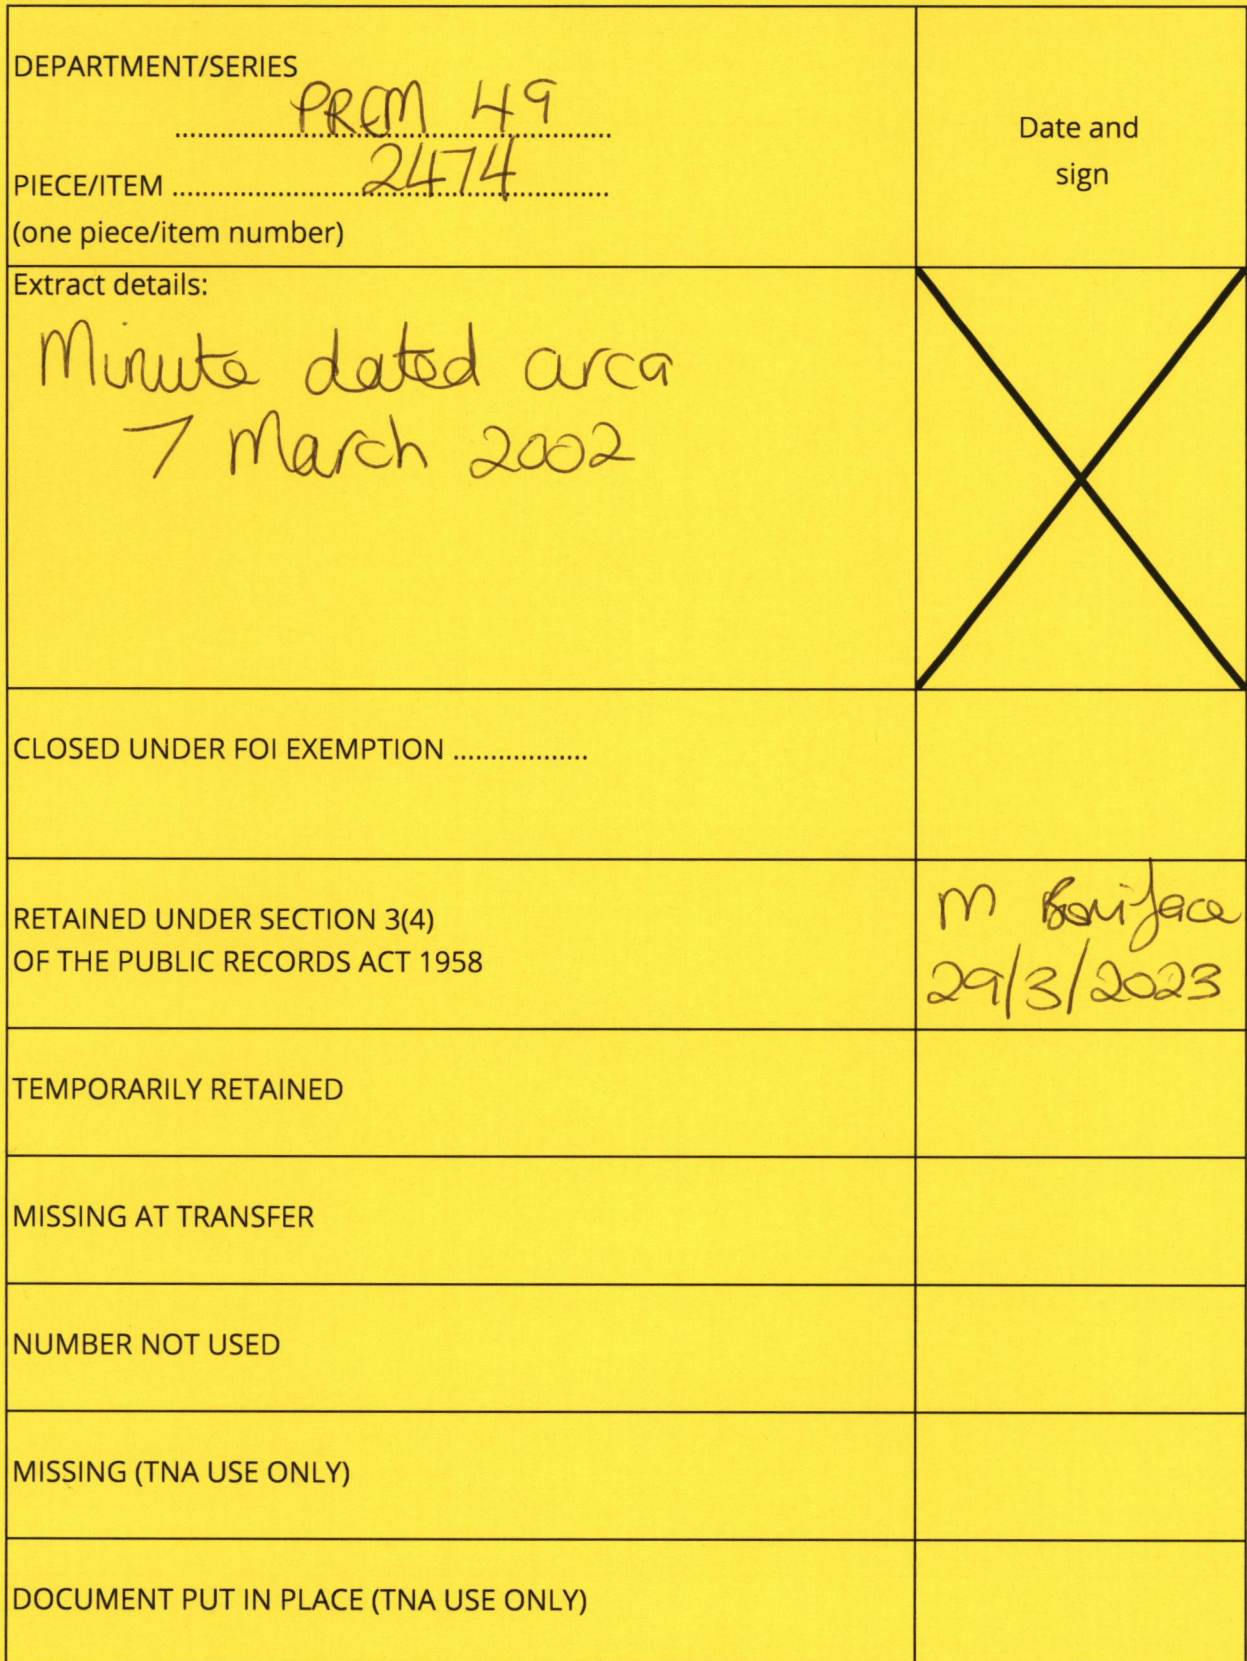 DEPARTMENT/SERIES
PREM 49
PIECE/ITEM 2474
(one piece/item number)
Date and
sign
Extract details:
Minute dated circa
7 March 2002
CLOSED UNDER FOI EXEMPTION ..................
RETAINED UNDER SECTION 3(4)
OF THE PUBLIC RECORDS ACT 1958
M Boniface
29/3/2023
TEMPORARILY RETAINED
MISSING AT TRANSFER
NUMBER NOT USED
MISSING (TNA USE ONLY)
DOCUMENT PUT IN PLACE (TNA USE ONLY)